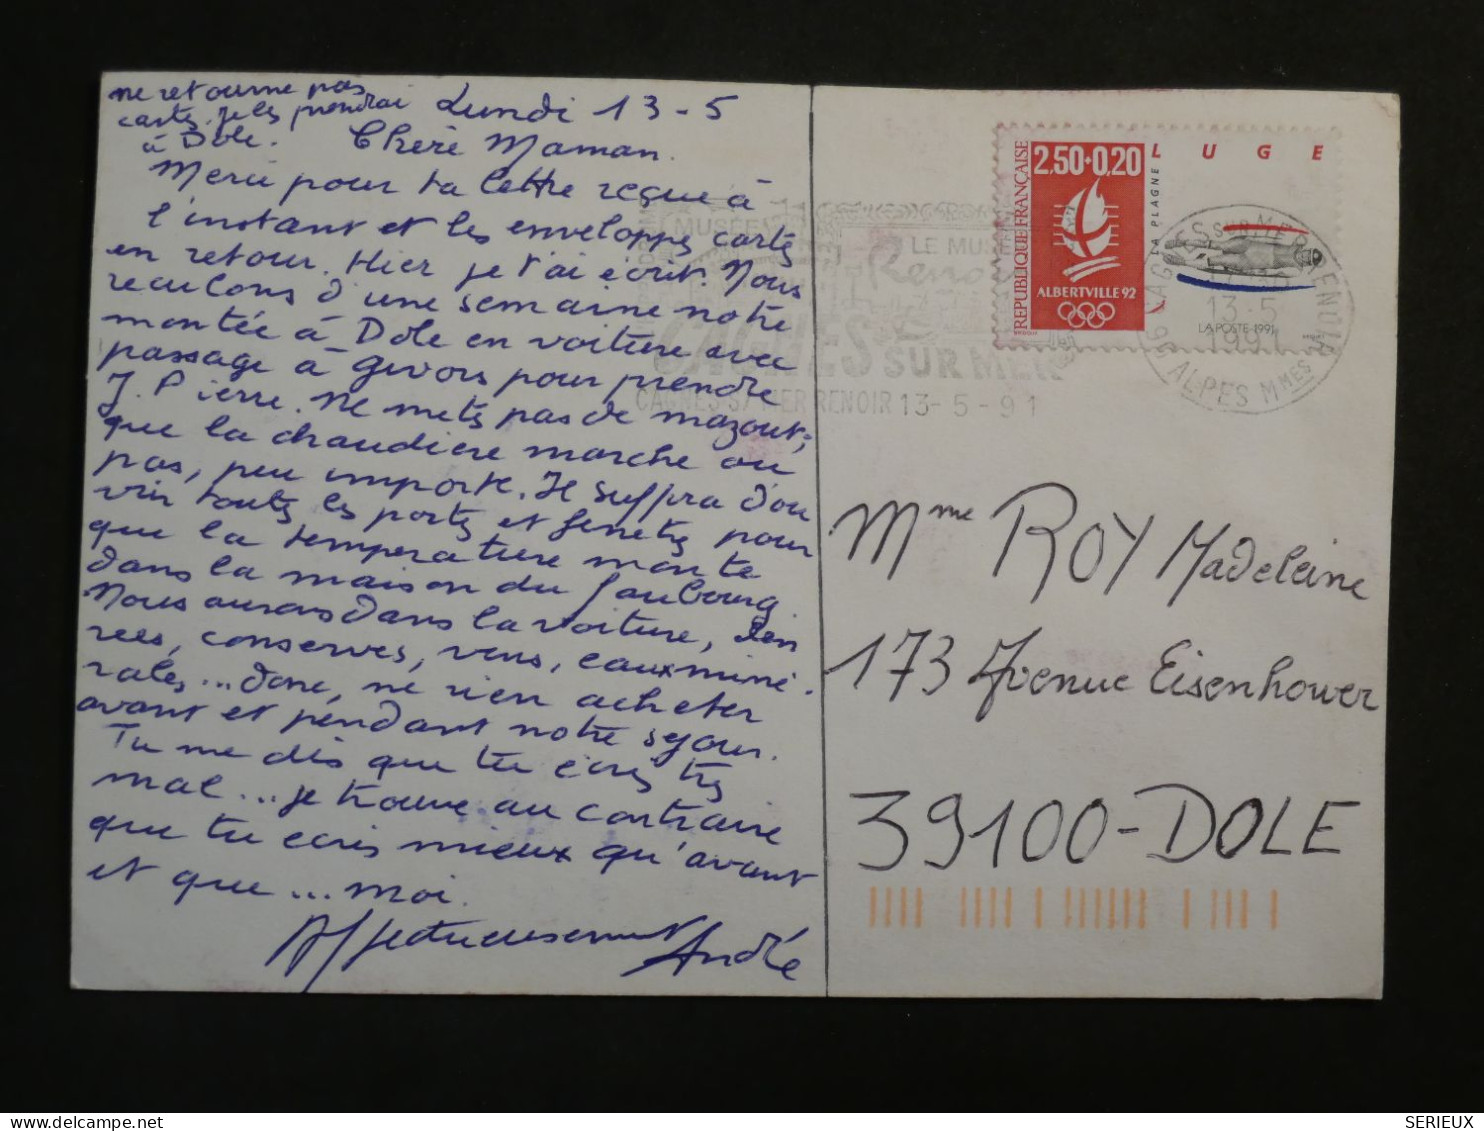 ne retourne pas
cartes. je les prendrai
à Dole.
Lundi 13-5
Chère Maman.
Merci pour ta lettre reçue à
l'instant et les enveloppes cartes
en retour. Hier je t'ai écrit. Nous
reculons d'une semaine notre
montée à Dole en voiture avec
passage à Givors pour prendre
J. Pierre. Ne mets pas de mazout;
que la chaudière marche ou
pas, peu importe. Il suffira d'ou
vrir toutes les portes et fenêtres pour
que la température monte
dans la maison du faubourg.
Nous aurons dans la voiture, den
rées, conserves, vins, eaux miné-
rales... donc, ne rien acheter
avant et pendant notre séjour.
Tu me dis que tu écris très
mal... je trouve au contraire
que tu écris mieux qu'avant
et que... moi.
Affectueusement André
REPUBLIQUE FRANÇAISE
2.50+0,20
LUGE
LA PLAGNE
ALBERTVILLE 92
LA POSTE 1991
CAGNES SUR MER RENOIR
13-5
1991
06 ALPES MMES
MUSEE
LE MUSEE
Renoir
CAGNES
SUR MER
CAGNES S/ MER RENOIR 13-5-91
Mme ROY Madeleine
173 Avenue Eisenhower
39100-DOLE
SERIEUX / www.delcampe.net